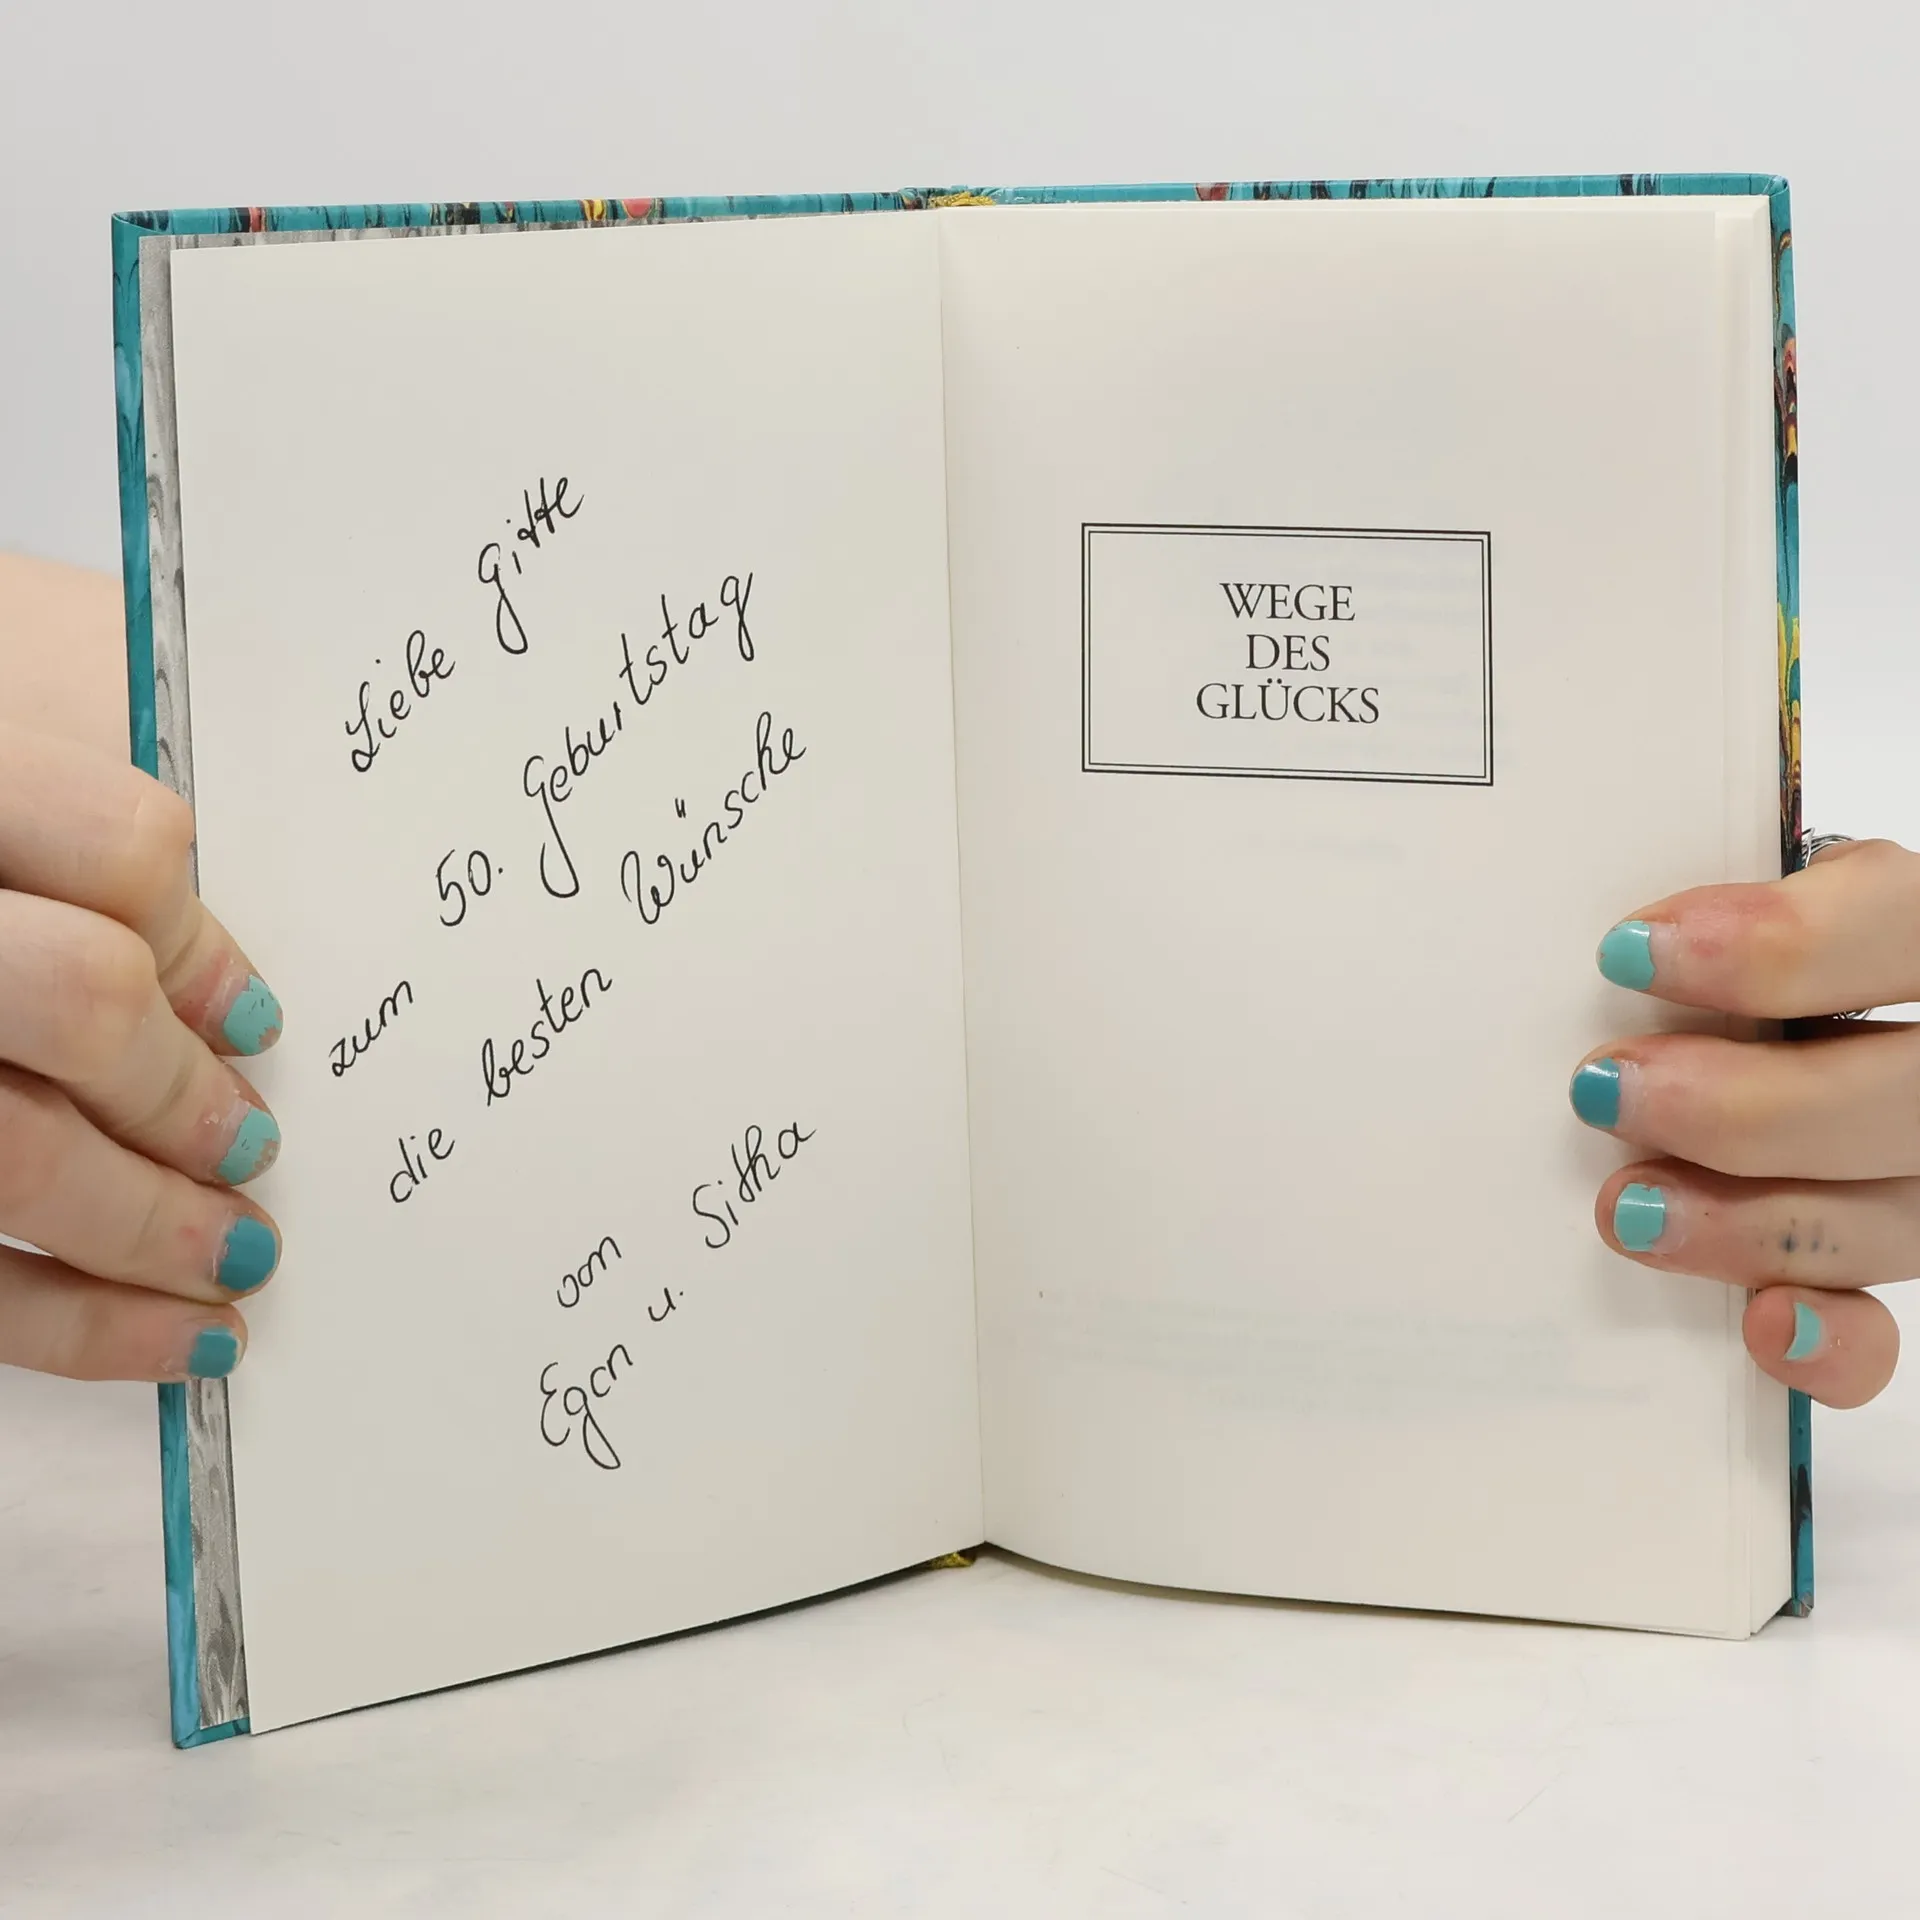 Liebe Gitte
zum 50. Geburtstag
die besten Wünsche
von
Egon u. Sitha
WEGE
DES
GLÜCKS